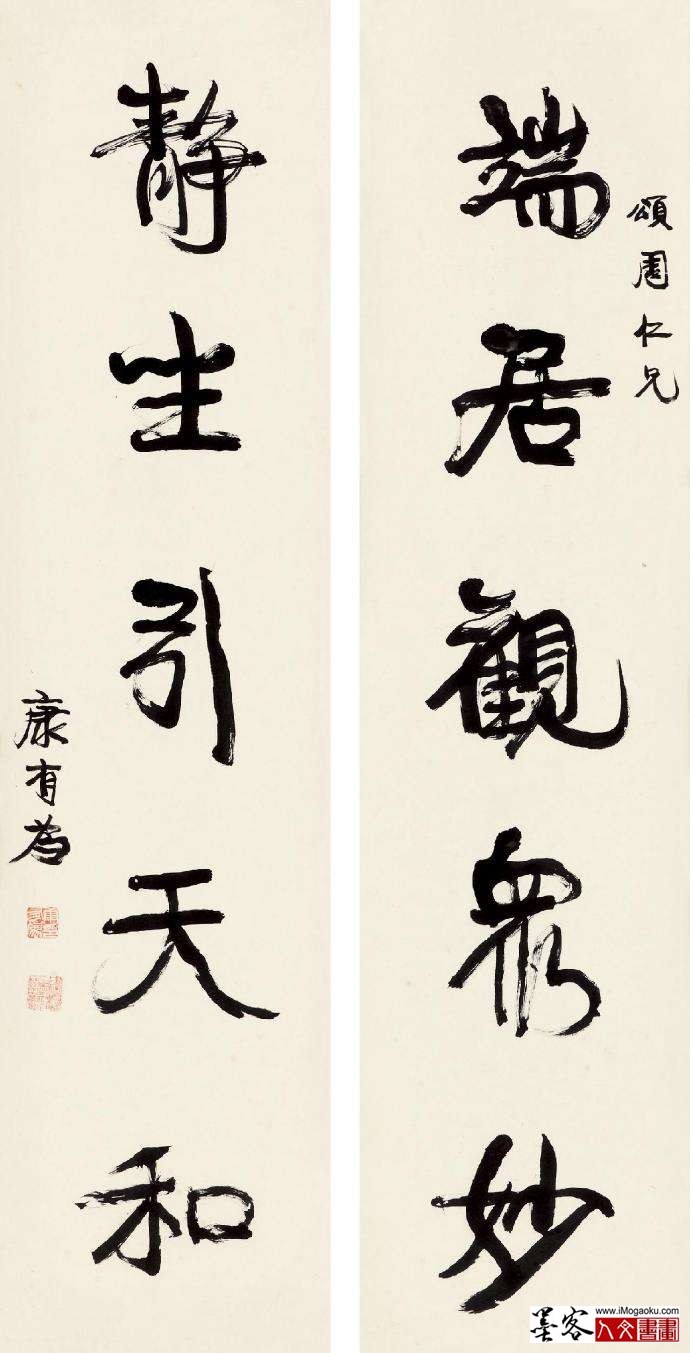 頌周仁兄
端居觀眾妙
靜坐引天和
康有為
www.iMogaoku.com
墨客人文書畫